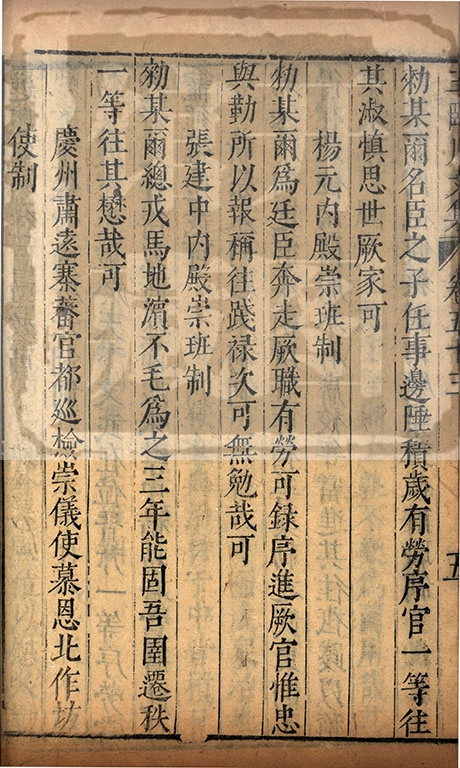 王臨川文集 卷五十三 五
勑某爾名臣之子任事邊陲積歲有勞序官一等往
其淑慎思世厥家可
楊元內殿崇班制
勑某爾爲廷臣奔走厥職有勞可録序進厥官惟忠
與勤所以報稱往踐禄次可無勉哉可
張建中內殿崇班制
勑某爾總戎馬地濵不毛爲之三年能固吾圉遷秩
一等往其懋哉可
慶州肅遠寨蕃官都巡檢崇儀使慕恩北作坊
使制